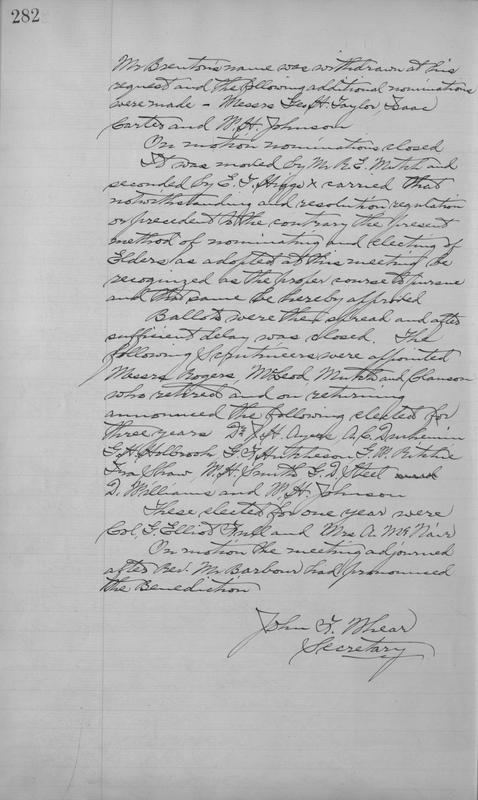 282
Mr Brenton's name was withdrawn at his
request and the following additional nominations
were made - Messrs Geo. H. Taylor, Isaac
Carter and W. H. Johnson
On motion nominations closed
It was moved by Mr R. E. Mutch and
seconded by E. T. Higgs & carried that
notwithstanding and resolution regulation
or precedent to the contrary the present
method of nominating and electing of
Elders as adopted at this meeting be
recoginzed as the proper course to pursue
and the same be hereby approved
Ballots were then spread and after
sufficient delay was closed. The
following Scrutineers were appointed
Messrs Rogers, McLeod, Mutch and Clauson
who retired and on returning
announced the following elected for
three years Dr J. H. Ayers A. C.
G. H. Holbrook G. F. Hutcheson G. M. Ritchie
Ira Shaw, W. H. Smith G. D. Steel and
D. Williams and W. H. Johnson
These elected for one year were
Col. G. Elliot Full and Mrs A. McNair
On motion the meeting adjourned
after Rev. Mr Barbour had pronounced
the Benediction
John F. Whear
Secretary